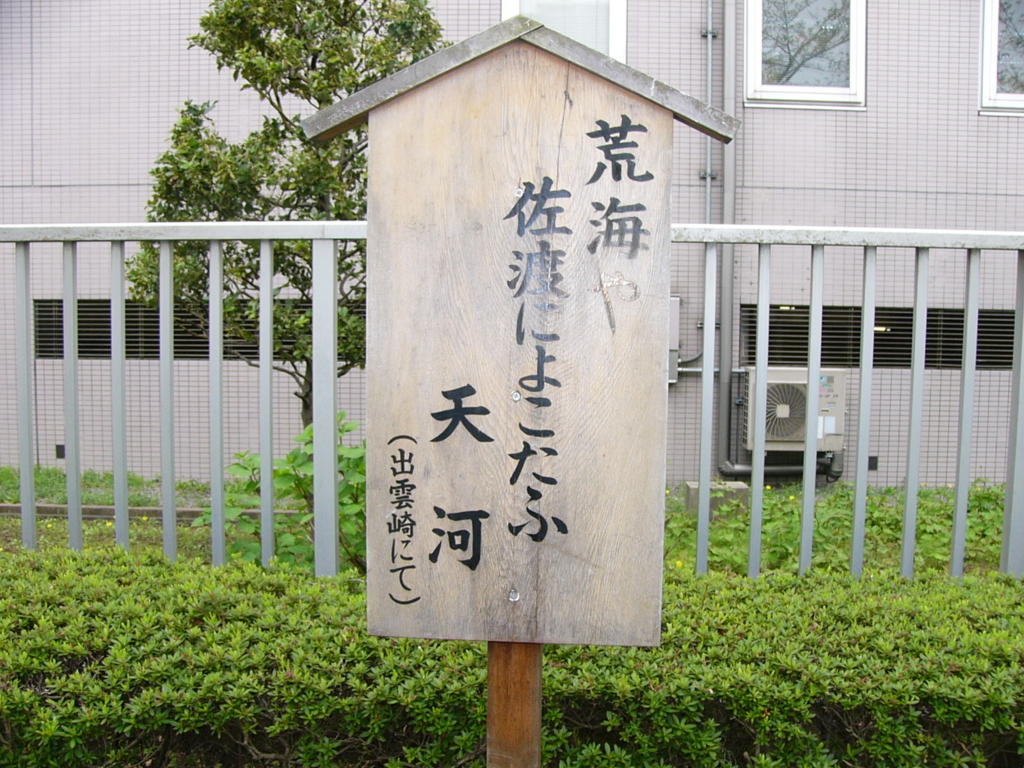 荒海や
佐渡によこたふ
天河
（出雲崎にて）